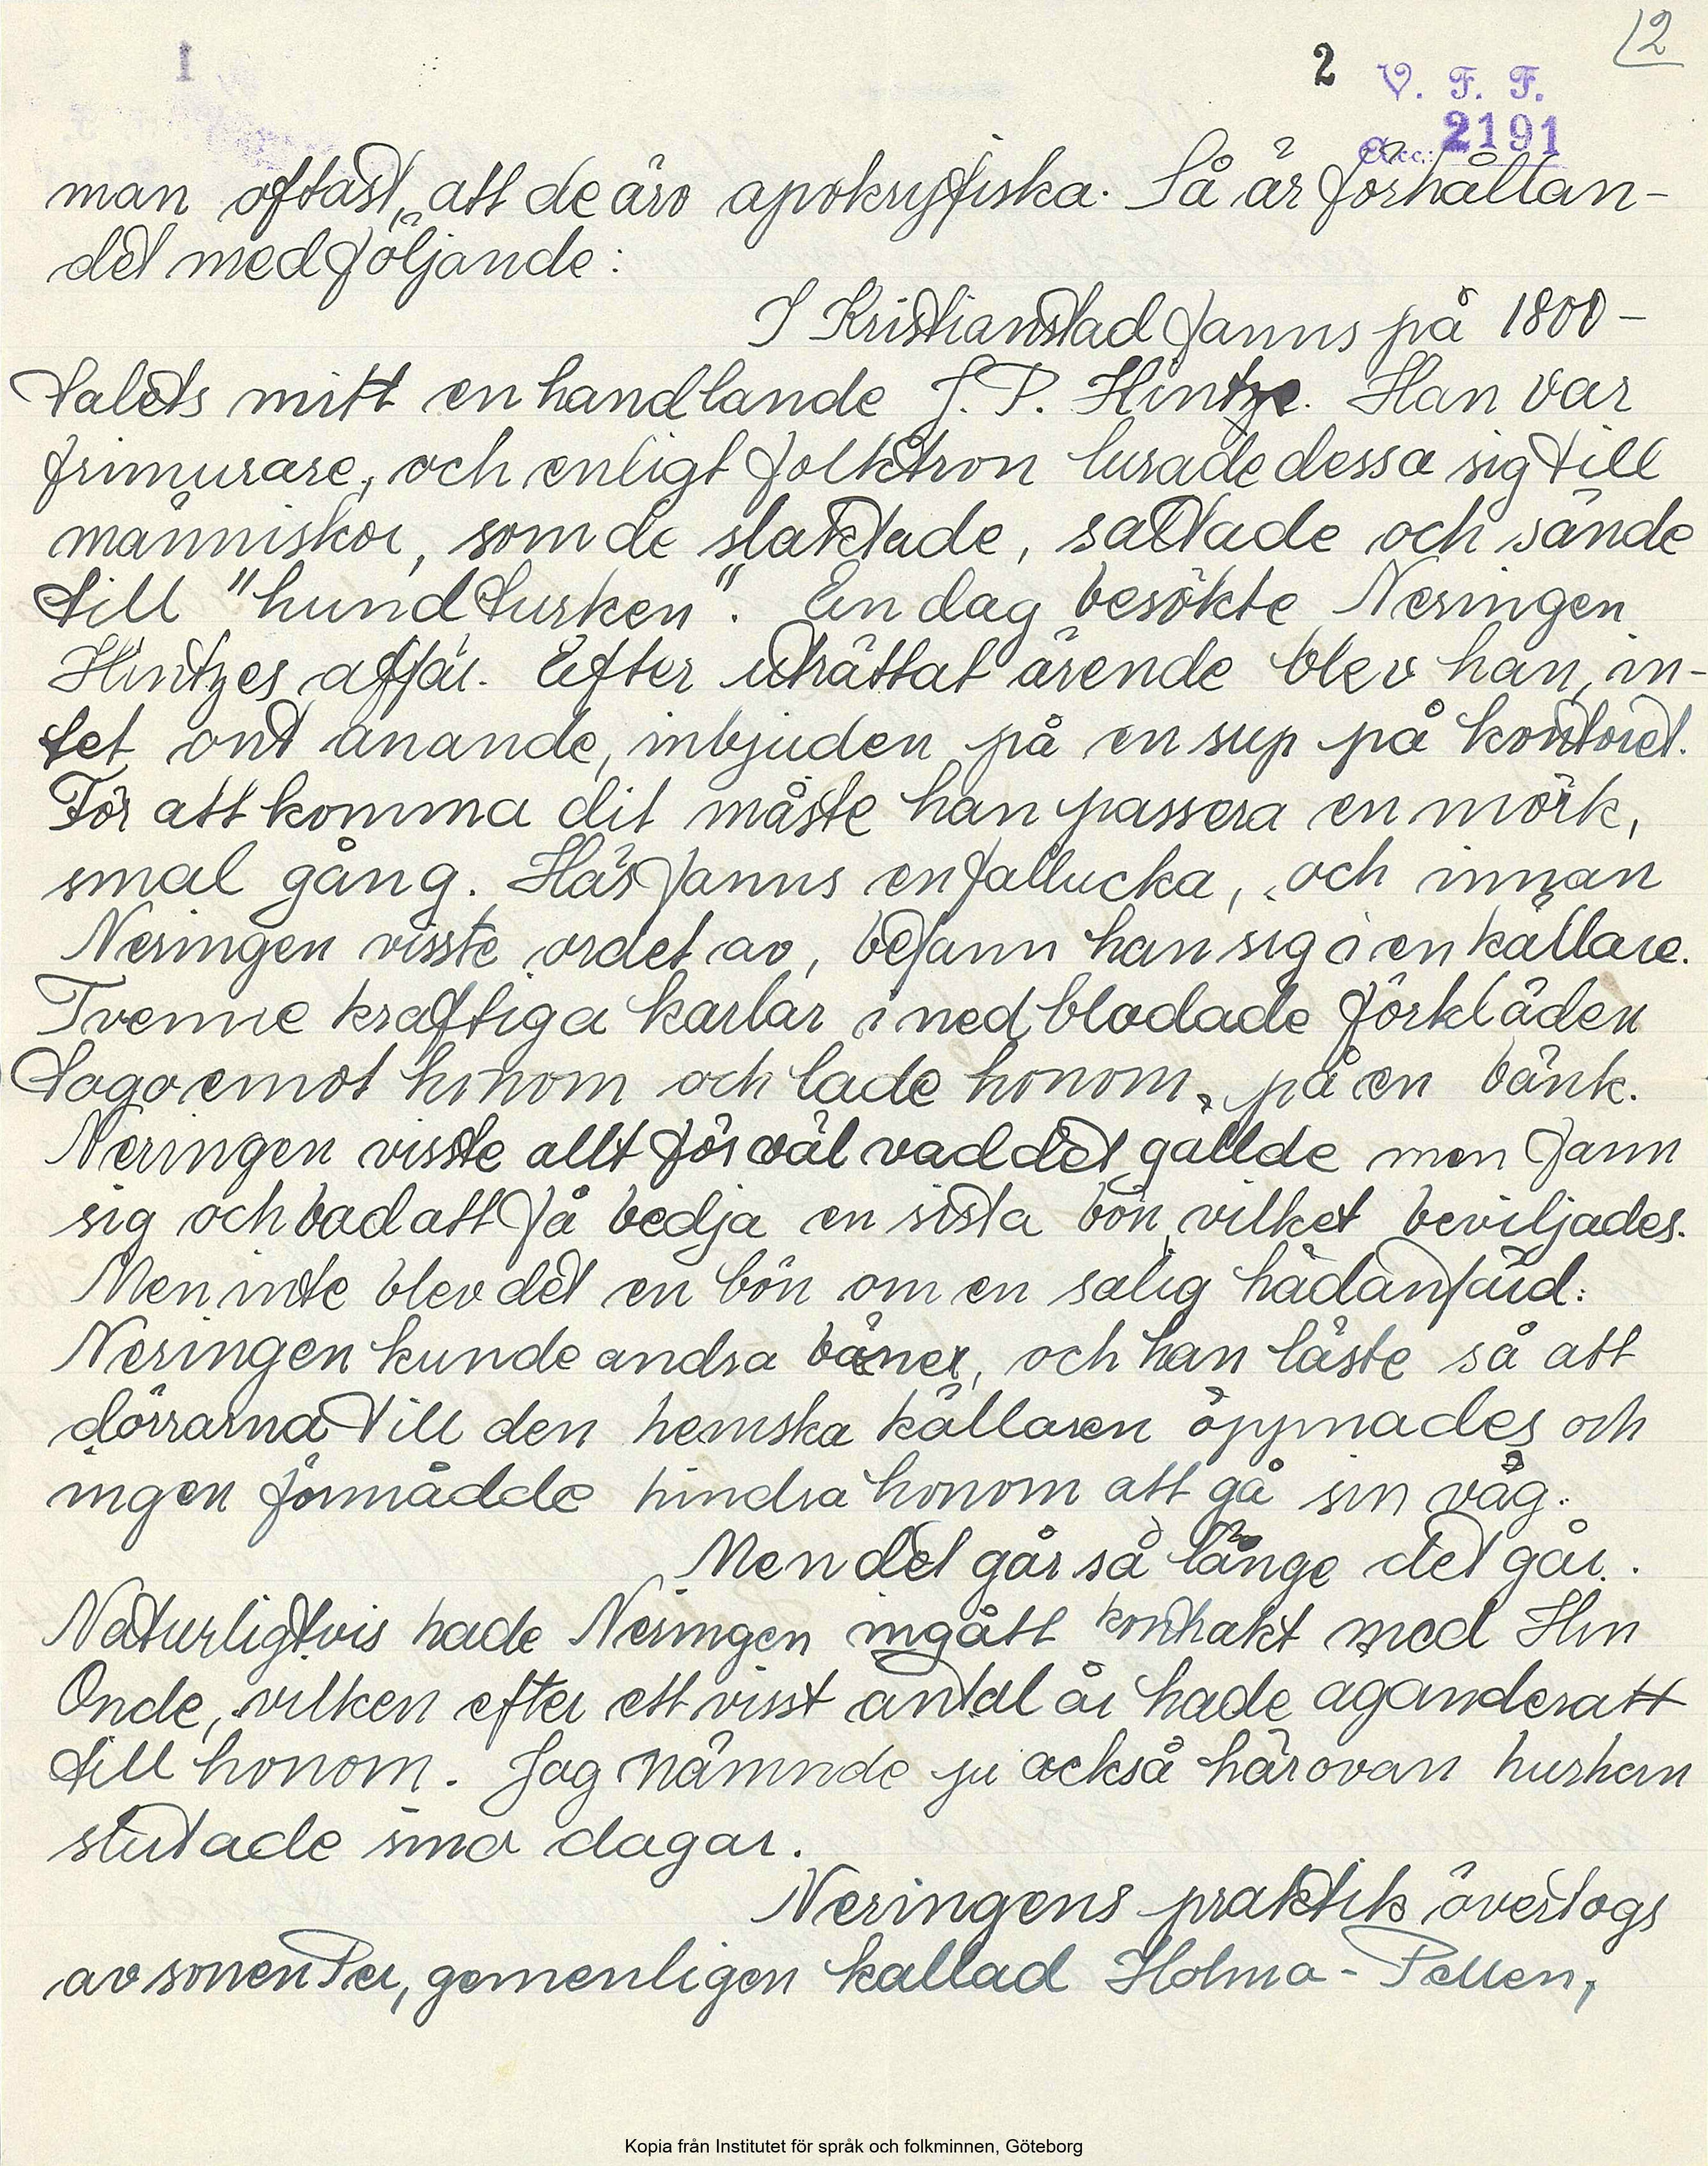 2
2 V. F. F.
Acc.: 2191
man oftast, att de äro apokryfiska. Så är förhållan-
det med följande:
I Kristianstad fanns på 1800-
talets mitt en handlande J. P. Hintze. Han var
frimurare, och enligt folktron lurade dessa sig till
människor, som de slaktade, saltade och sände
till "hundturken". En dag besökte Neringen
Hintzes affär. Efter uträttat ärende blev han, in-
tet ont anande, inbjuden på en sup på kontoret.
För att komma dit måste han passera en mörk,
smal gång. Här fanns en fallucka, och innan
Neringen visste ordet av, befann han sig i en källare.
Tvenne kraftiga karlar i nedblodade förkläden
togo emot honom och lade honom på en bänk.
Neringen visste allt för väl vad det gällde men fann
sig och bad att få bedja en sista bön, vilket beviljades.
Men inte blev det en bön om en salig hädanfärd:
Neringen kunde andra böner, och han läste så att
dörrarna till den hemska källaren öppnades och
ingen förmådde hindra honom att gå sin väg.
Men det går så länge det går.
Naturligtvis hade Neringen ingått kontrakt med Hin
Onde, vilken efter ett visst antal år hade äganderätt
till honom. Jag nämnde ju också härovan hur han
slutade sina dagar.
Neringens praktik övertogs
av sonen Per, gemenligen kallad Holma-Pellen,
Kopia från Institutet för språk och folkminnen, Göteborg